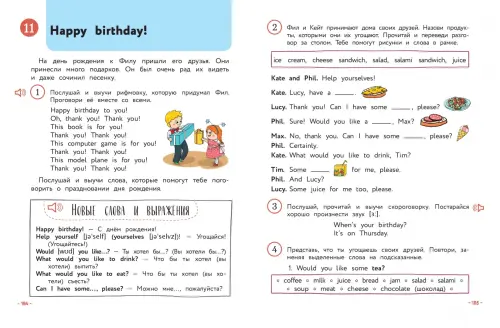 11
Happy birthday!
На день рождения к Филу пришли его друзья. Они
принесли много подарков. Он был очень рад их видеть
и даже сочинил песенку.
1 Послушай и выучи рифмовку, которую придумал Фил.
Проговори её вместе со всеми.
Happy birthday to you!
Oh, thank you! Thank you!
This book is for you!
Thank you! Thank you!
This computer game is for you!
Thank you! Thank you!
This model plane is for you!
Thank you! Thank you!
Послушай и выучи слова, которые помогут тебе пого-
ворить о праздновании дня рождения.
Новые слова и выражения
Happy birthday! — С днём рождения!
Help yourself [jəˈself] (yourselves [jəˈselvz])! — Угощайся!
(Угощайтесь!)
Would [wʊd] you like...? — Ты хотел бы...? (Вы хотели бы...?)
What would you like to drink? — Что бы ты хотел (вы хо-
тели) выпить?
What would you like to eat? — Что бы ты хотел (вы хо-
тели) съесть?
Can I have some..., please? — Можно мне..., пожалуйста?
2 Фил и Кейт принимают дома своих друзей. Назови продук-
ты, которыми они их угощают. Прочитай и переведи разго-
вор за столом. Тебе помогут рисунки и слова в рамке.
ice cream, cheese sandwich, salad, salami sandwich, juice
Kate and Phil. Help yourselves!
Kate. Lucy, have a ____.
Lucy. Thank you! Can I have some ____, please?
Phil. Sure! Would you like a ____, Max?
Max. No, thank you. Can I have some ____, please?
Phil. Certainly.
Kate. What would you like to drink, Tim?
Tim. Some ____ for me, please.
Phil. And Lucy?
Lucy. Some juice for me too, please.
3 Послушай, прочитай и выучи скороговорку. Постарайся
хорошо произнести звук [ɜː].
When's your birthday?
It's on Thursday.
4 Представь, что ты угощаешь своих друзей. Повтори, за-
меняя выделенные слова на подсказанные.
1. Would you like some tea?
• coffee • milk • juice • bread • jam • salad • salami •
• soup • meat • cheese • chocolate (шоколад) •